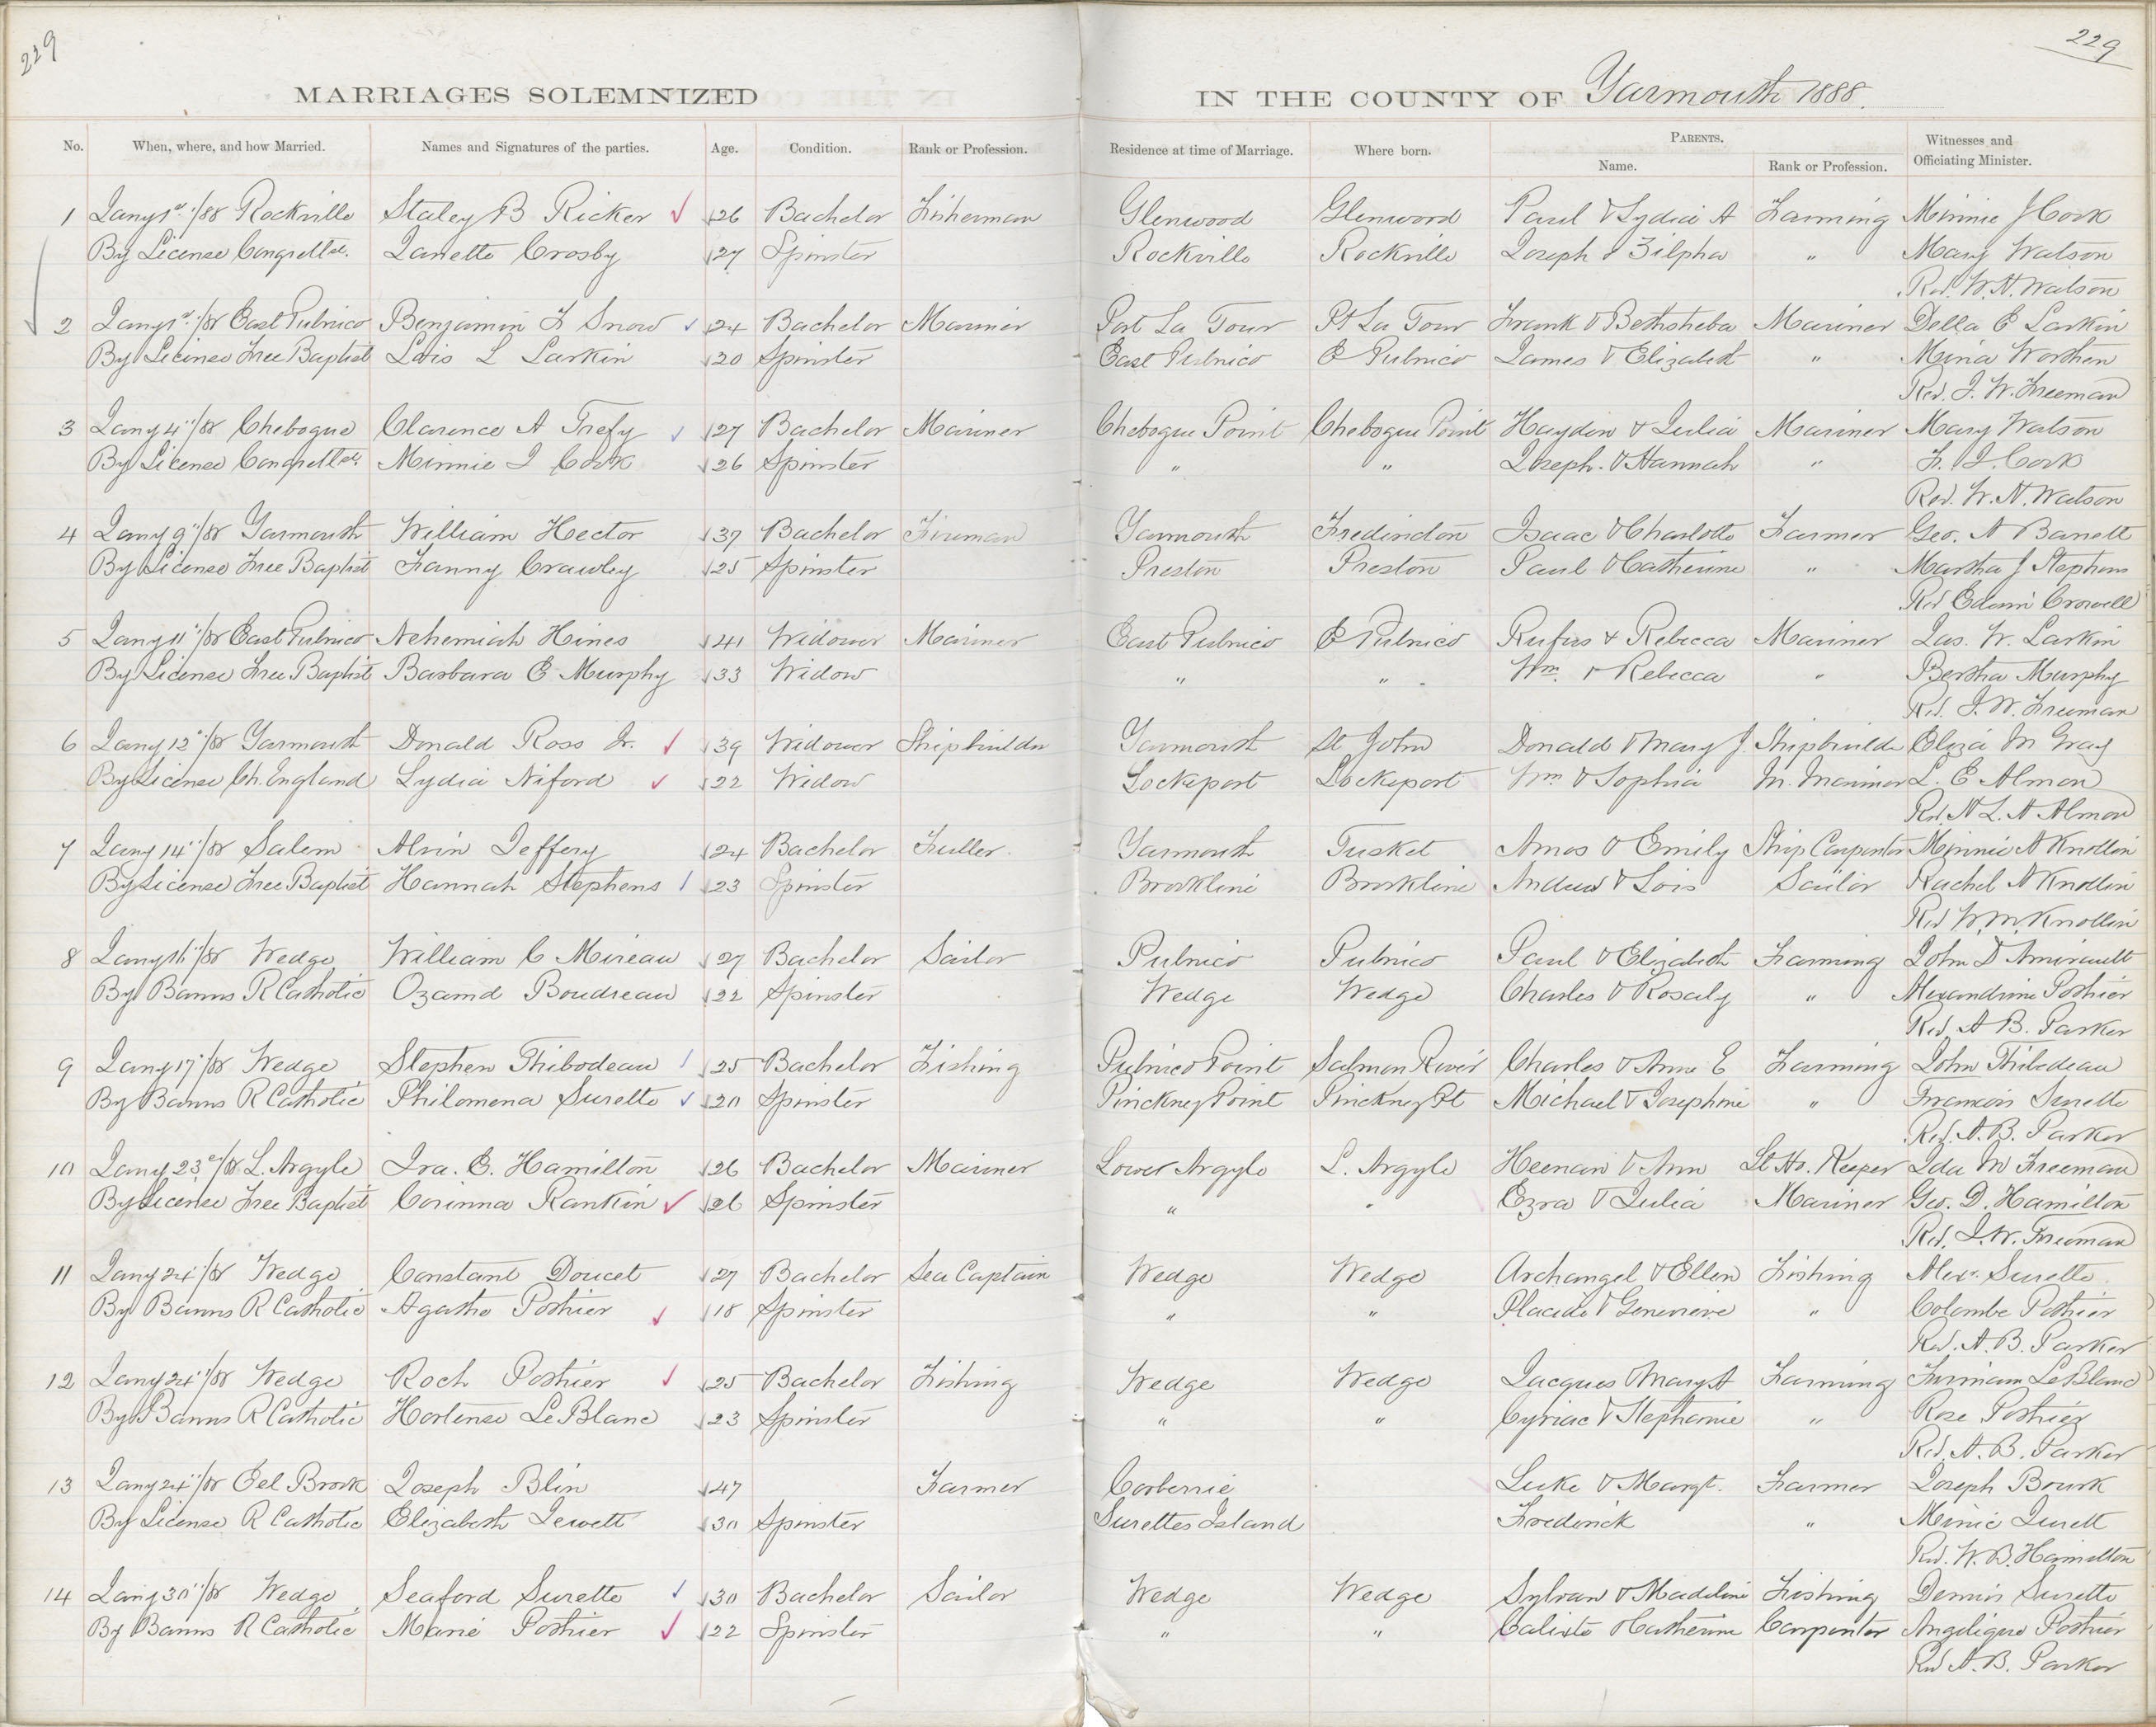 229
229
MARRIAGES SOLEMNIZED IN THE COUNTY OF Yarmouth 1888.
No. When, where, and how Married. Names and Signatures of the parties. Age. Condition. Rank or Profession. Residence at time of Marriage. Where born. PARENTS. Name. Rank or Profession. Witnesses and Officiating Minister.
1 Jany 1st/88 Rockville Staley B Ricker 26 Bachelor Fisherman Glenwood Glenwood Paul & Lydia A Farming Minnie J Cook
By License Congretl Janette Crosby 27 Spinster Rockville Rockville Joseph & Zilpha " Mary Watson
Rev. W. H. Watson
2 Jany 1st/88 East Pubnico Benjamin F Snow 24 Bachelor Mariner Port La Tour Pt La Tour Frank & Bethsheba Mariner Della E Larkin
By License Free Baptist Lois L Larkin 20 Spinster East Pubnico E Pubnico James & Elizabeth " Mina Worthen
Rev. J. W. Freeman
3 Jany 4"/88 Chebogue Clarence A Trefy 27 Bachelor Mariner Chebogue Point Chebogue Point Haydin & Julia Mariner Mary Watson
By License Congretl Minnie J Cook 26 Spinster " " Joseph & Hannah " F. J. Cook
Rev. W. H. Watson
4 Jany 9"/88 Yarmouth William Hector 37 Bachelor Fireman Yarmouth Fredincton Isaac & Charlotte Farmer Geo. A Barrett
By License Free Baptist Fanny Crawley 25 Spinster Preston Preston Paul & Catherine " Martha J Stephens
Rev Edwin Crowell
5 Jany 11"/88 East Pubnico Nehemiah Hines 41 Widower Mariner East Pubnico E Pubnico Rufus & Rebecca Mariner Jas. W. Larkin
By License Free Baptist Barbara E Murphy 33 Widow " " Wm. & Rebecca " Bertha Murphy
Rev. J. W. Freeman
6 Jany 12"/88 Yarmouth Donald Ross Jr. 39 Widower Shipbuilder Yarmouth St John Donald & Mary J. Shipbuilder Eliza M Gray
By License Ch. England Lydia Niford 22 Widow Lockeport Lockeport Wm & Sophia M. Mariner L. E Almon
Rev. H. L. A Almon
7 Jany 14"/88 Salem Alvin Jeffery 24 Bachelor Fuller Yarmouth Tusket Amos & Emily Ship Carpenter Minnie A Knollin
By License Free Baptist Hannah Stephens 23 Spinster Brookline Brookline Andrew & Lois Sailor Rachel A Knollin
Rev W. M. Knollin
8 Jany 16"/88 Wedge William C Mireau 27 Bachelor Sailor Pubnico Pubnico Paul & Elizabeth Farming John D Amirault
By Banns R Catholic Ozamd Boudreau 22 Spinster Wedge Wedge Charles & Rosaly " Alexandrine Pothier
Rev. A B. Parker
9 Jany 17"/88 Wedge Stephen Thibodeau 25 Bachelor Fishing Pubnico Point Salmon River Charles & Anne E Farming John Thibedeau
By Banns R Catholic Philomena Surette 20 Spinster Pinckney Point Pinckney Pt Michael & Josephine " Francois Surette
Rev. A. B. Parker
10 Jany 23"/88 L. Argyle Ira. E. Hamilton 26 Bachelor Mariner Lower Argyle L. Argyle Heenan & Ann Lt Ho. Keeper Ida M Freeman
By License Free Baptist Corinna Rankin 26 Spinster " " Ezra & Julia Mariner Geo. D. Hamilton
Rev. J. W. Freeman
11 Jany 24"/88 Wedge Constant Doucet 27 Bachelor Sea Captain Wedge Wedge Archangel & Ellen Fishing Alex. Surette
By Banns R Catholic Agatha Pothier 18 Spinster " " Placide & Genevieve " Colombe Pothier
Rev. A. B. Parker
12 Jany 24"/88 Wedge Roch Pothier 25 Bachelor Fishing Wedge Wedge Jacques & Mary A Farming Firmain LeBlanc
By Banns R Catholic Hortense LeBlanc 23 Spinster " " Cyriac & Stephanie " Rose Pothier
Rev. A. B. Parker
13 Jany 24"/88 Eel Brook Joseph Blin 47 Farmer Corberrie Luke & Margt. Farmer Joseph Bourk
By License R Catholic Elizabeth Jewett 30 Spinster Surettes Island Frederick " Minie
Rev. W. B. Hamilton
14 Jany 30"/88 Wedge Seaford Surette 30 Bachelor Sailor Wedge Wedge Sylvan & Madeline Fishing Dennis Surette
By Banns R Catholic Marie Pothier 22 Spinster " " Calixte & Catherine Carpenter Angelique Pothier
Rev A. B. Parker